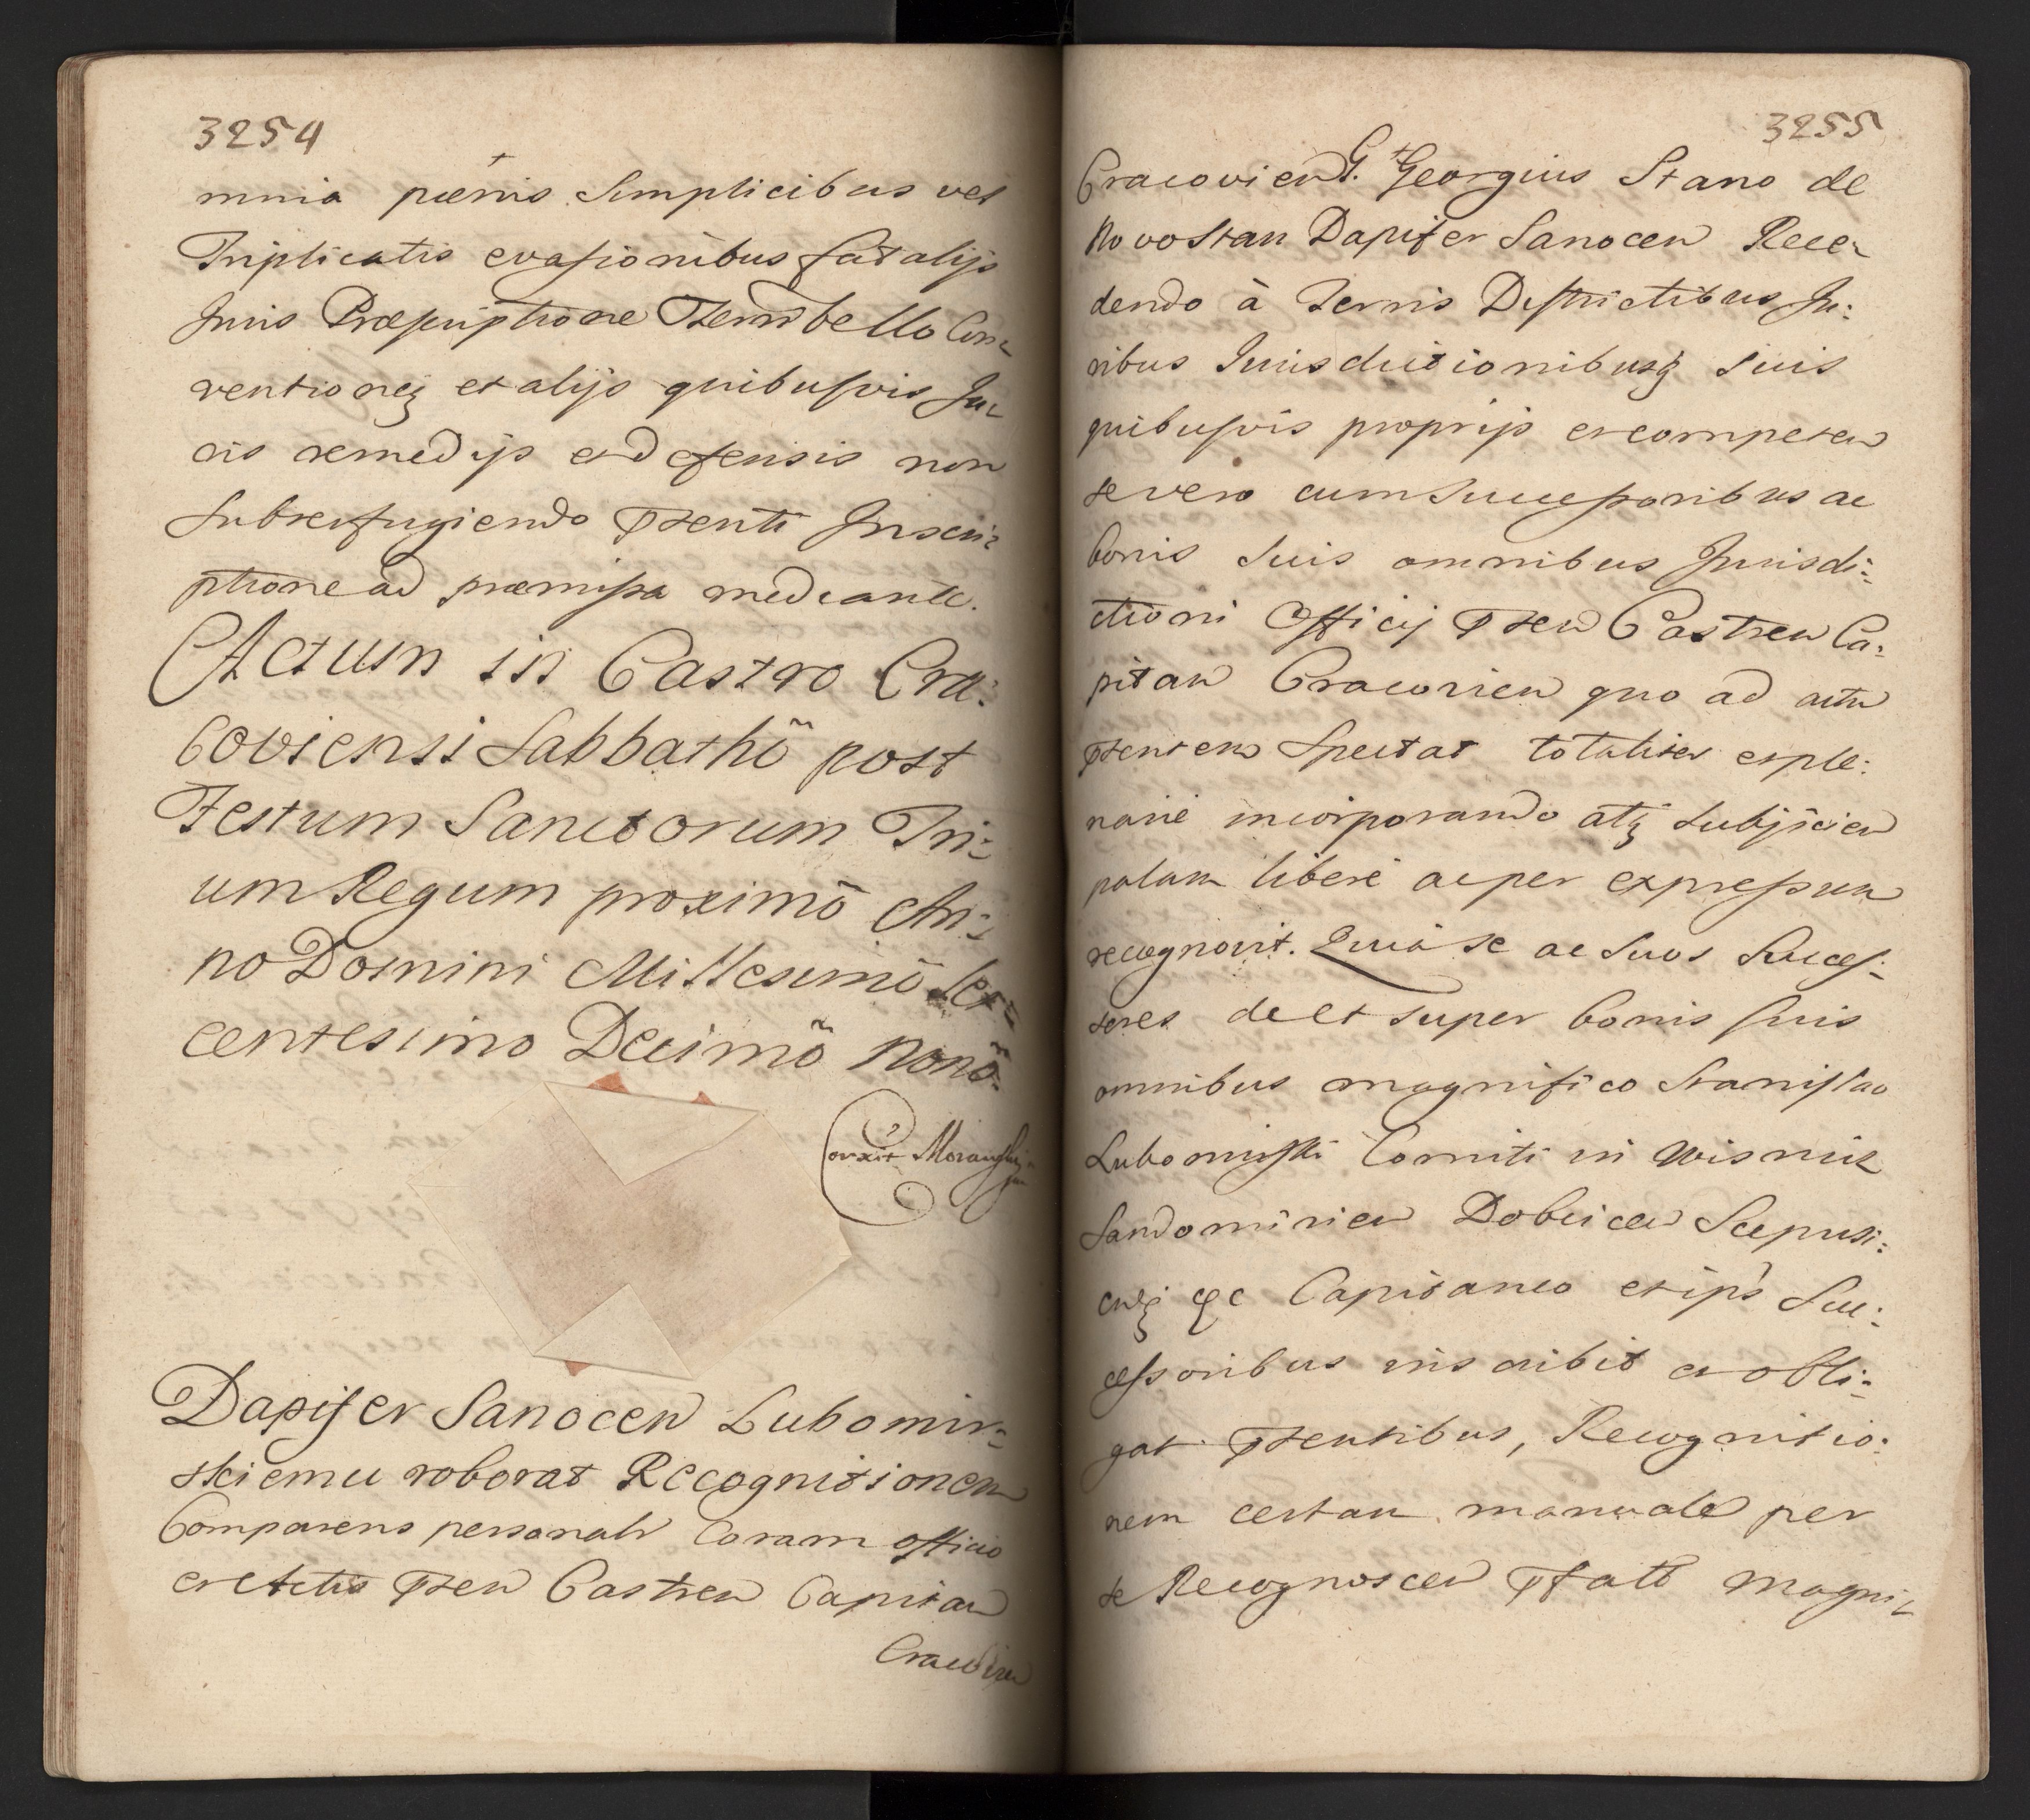 3254
mnia pœnis Simplicibus vel
Triplicatis evasionibus fatalijs
Juris Præscriptione Terrũ bello Con-
ventioneq; et alijs quibusvis Ju-
ris remedijs et defensis non
Subterfugiendo Pzenti Inscri-
ptione ad præmissa mediante.
Actum in Castro Cra:
coviensi Sabbathõ post
Festum Sanctorum Tri:
um Regum proximõ An:
no Domini Millesimõ Sex:
centesimo Decimõ Nonõ.
Corexit
Dapifer Sanocen Lubomir:
skiemu roborat Recognitionem
Comparens personalr Coram officio
et Actis Pzen Castren Capitan
Cracovien
3255
Cracovien G. Georgius Stano de
Novostan Dapifer Sanocen Rece-
dendo à Terris Districtibus Ju:
ribus Jurisdictionibusq; suis
quibusvis proprijs et competen
se vero cum Successoribus ac
bonis Suis omnibus Jurisdi:
ctioni Officij Pzen Castren Ca:
pitan Cracovien quo ad actu
Pzentem Spectat totaliter et ple:
narie incorporando atq; Subjicien
palam libere ac per expressum
recognovit. Quia Se ac Suos Succes:
sores de et super bonis suis
omnibus magnifico Stanislao
Lubomirski Comiti in Wisnicz
Sandomirien Dobcicen Scepusi:
enq; &c Capitaneo et ips Suc:
cessoribus inscribit et obli:
gat Pzentibus, Recognitio:
nem certam manuale per
se Recognoscen Pfato Magni-